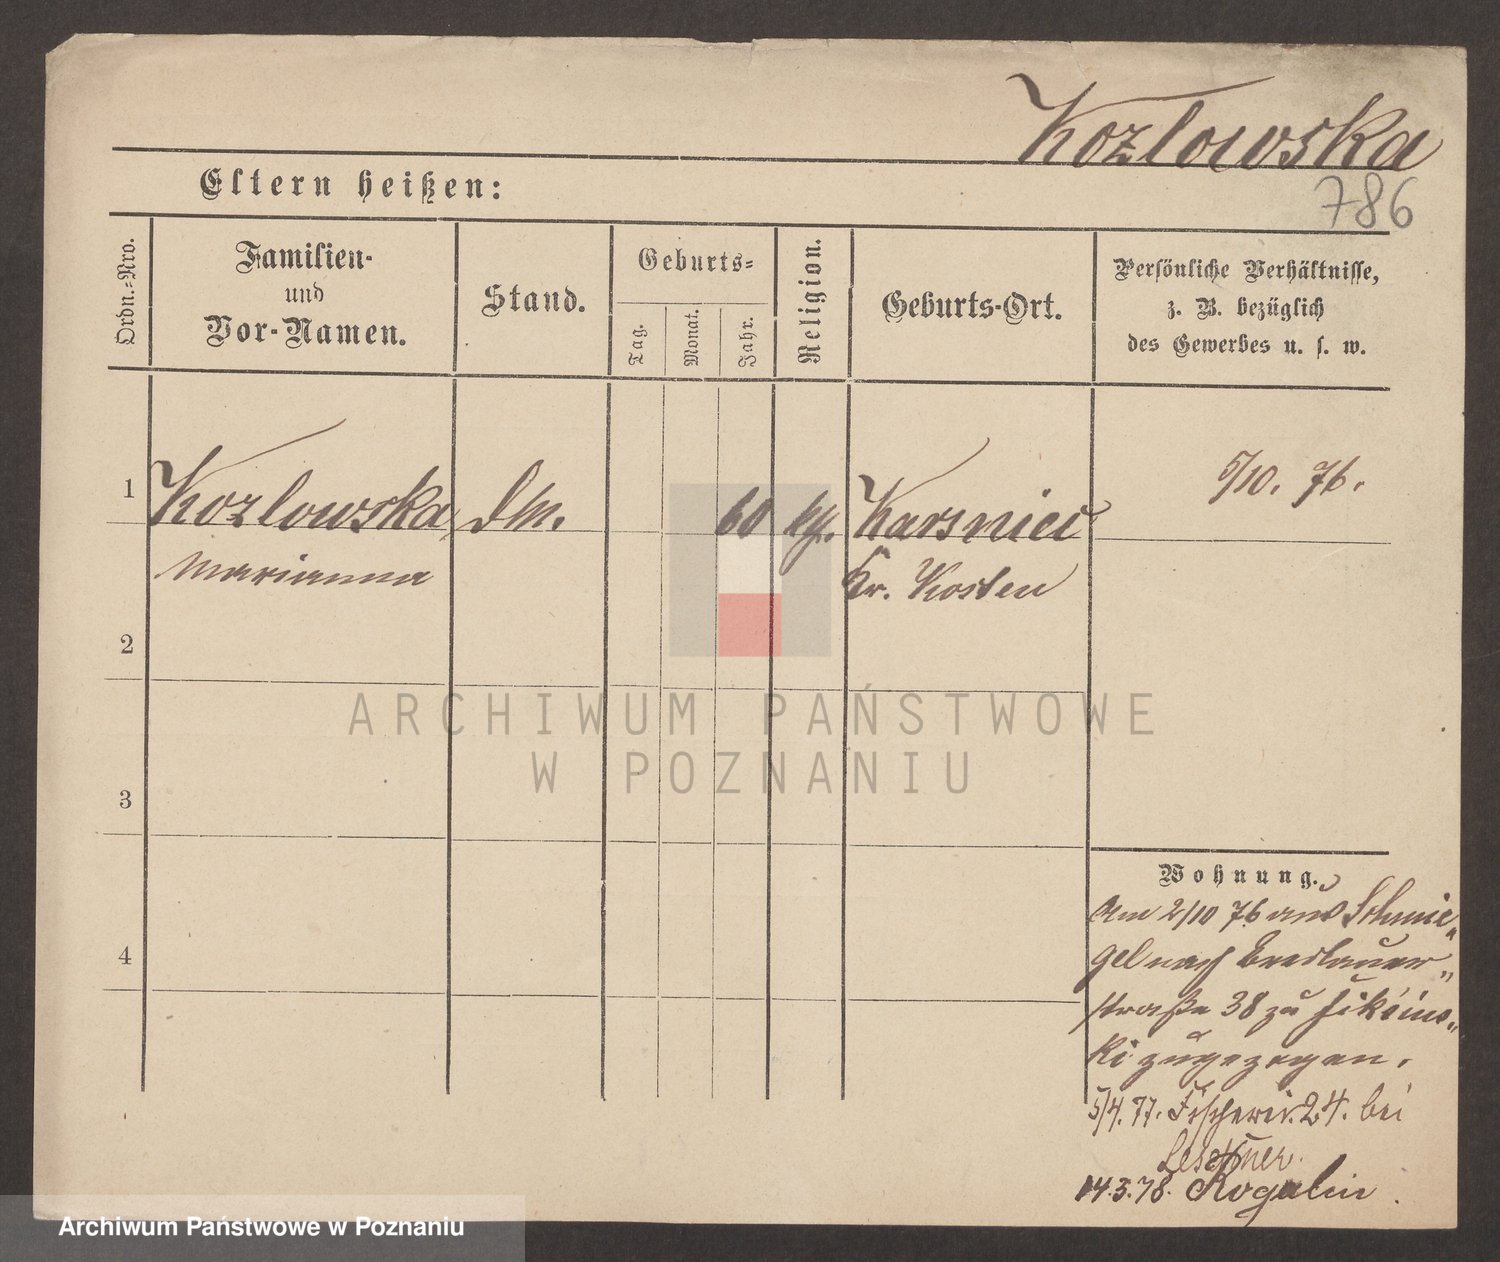 Kozlowska
786
Eltern heißen:
Ordn.-Nro.
Familien-
und
Vor-Namen.
Stand.
Geburts-
Tag.
Monat.
Jahr.
Religion.
Geburts-Ort.
Persönliche Verhältnisse,
z. B. bezüglich
des Gewerbes u. s. w.
1
Kozlowska
Marianna
60
Karsniec
Kr. Kosten
5/10. 76.
2
3
4
Wohnung.
Am 2/10 76 aus Schmie-
gel nach Breslauer-
straße 38 zu
ki zugezogen.
5/4. 77. Fischerei. 24. bei
14.3.78. Rogalin.
ARCHIWUM PAŃSTWOWE
W POZNANIU
Archiwum Państwowe w Poznaniu